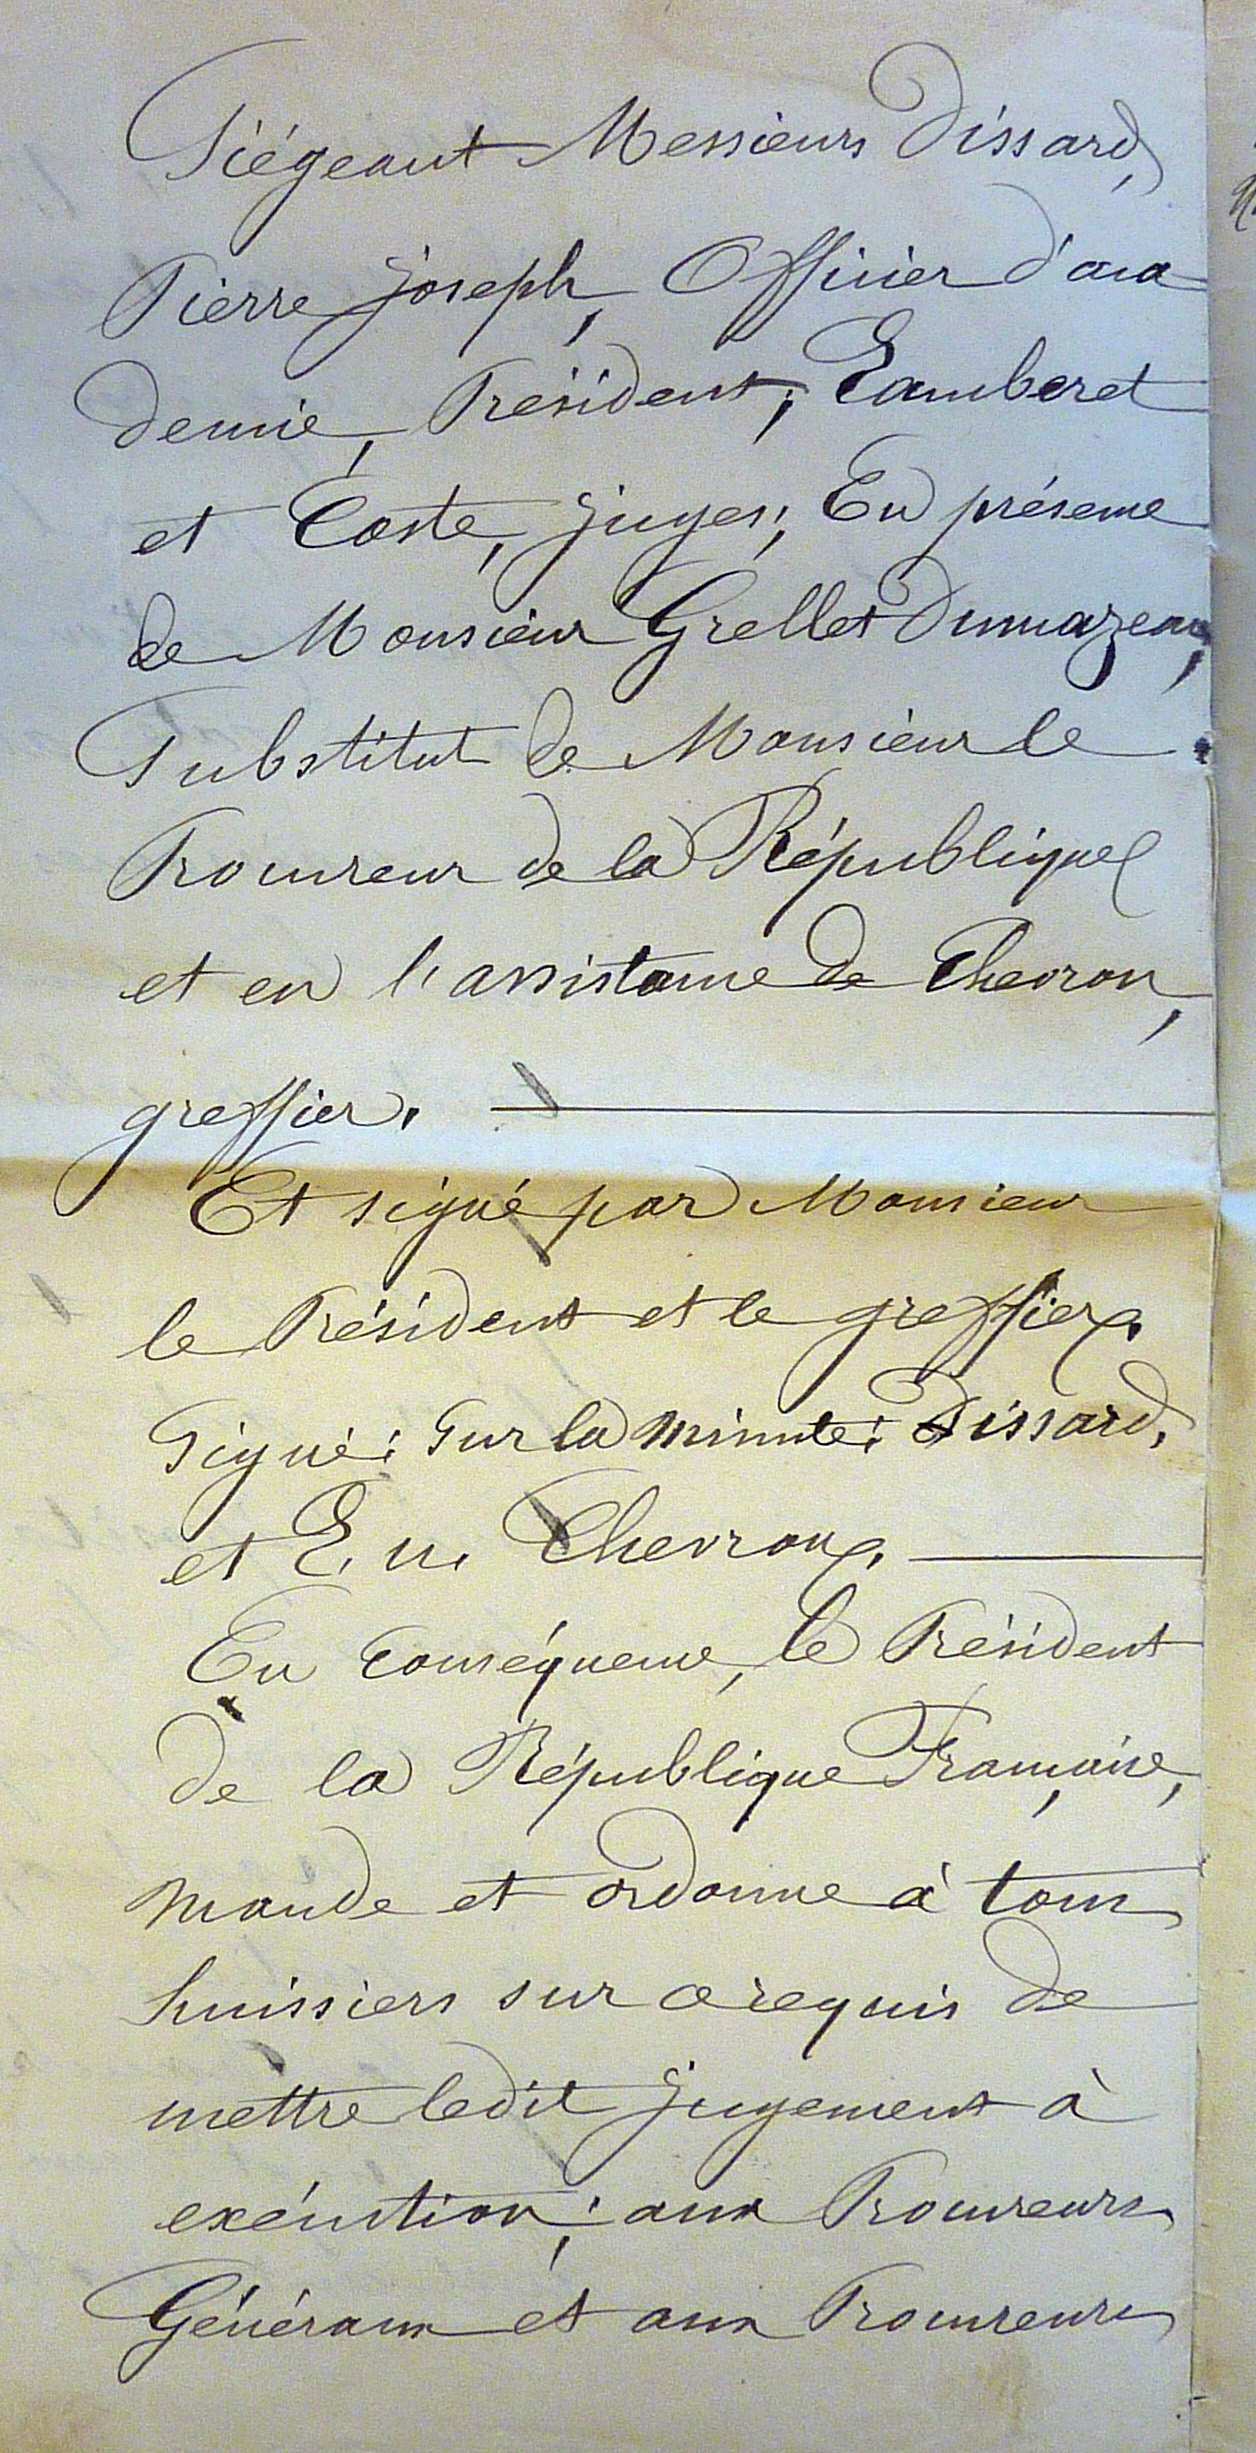 Siégeant Messieurs Dissard,
Pierre Joseph, Officier d'aca
demie, Président; Lamberet
et Coste, juges; En présence
de Monsieur Grellet Dumazeau,
Substitut de Monsieur le
Procureur de la République
et en l'assistance de Chevron,
greffier.
Et signé par Monsieur
le Président et le greffier.
Signé: Sur la minute: Dissard,
et E. Chevron.
En conséquence, le Président
de la République Française,
mande et ordonne à tous
huissiers sur ce requis de
mettre ledit jugement à
exécution; aux Procureurs
Généraux et aux Procureurs